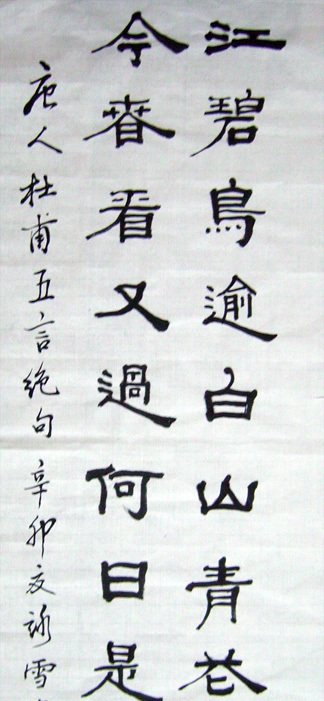 江碧鳥逾白山青花
今春看又過何日是
唐人杜甫五言绝句 辛卯友詠雪